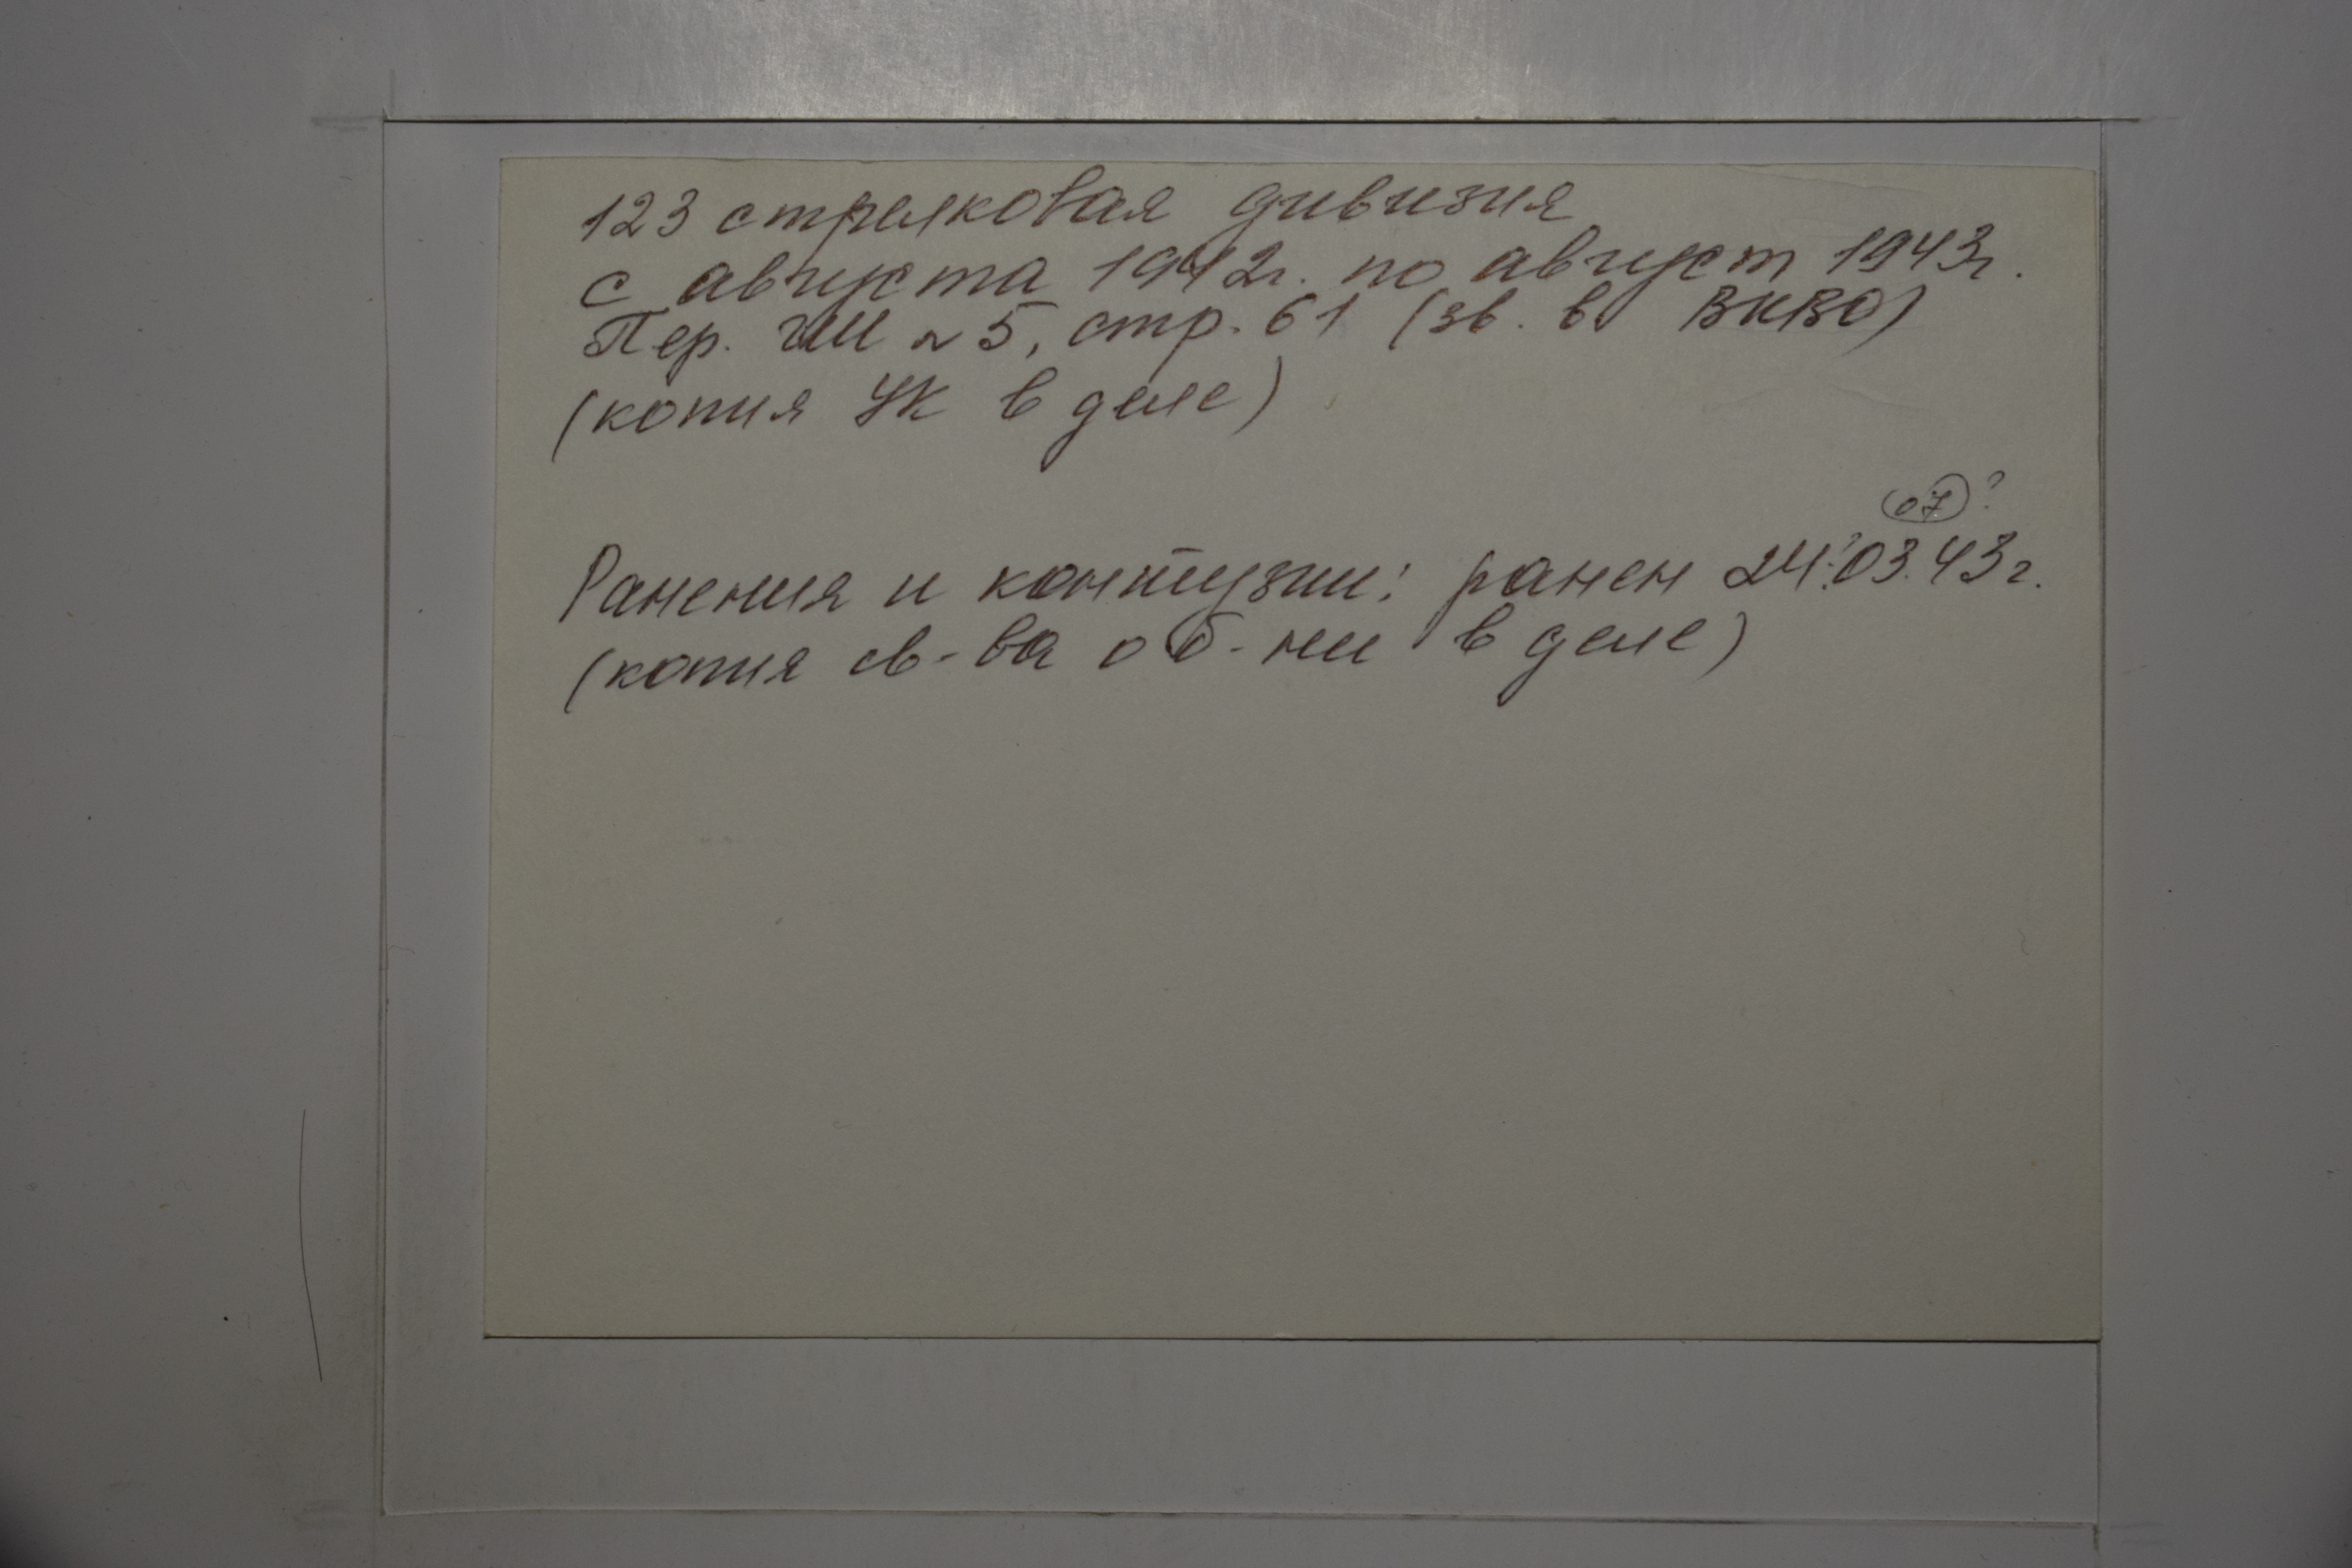 123 стрелковая дивизия
с августа 1942г. по август 1943г.
Пер. ГШ № 5, стр. 61 (зв. в ВКВО)
(копия УК в деле)
07 ?
Ранения и контузии: ранен 24.?03.43г.
(копия св-ва о б-ни в деле)